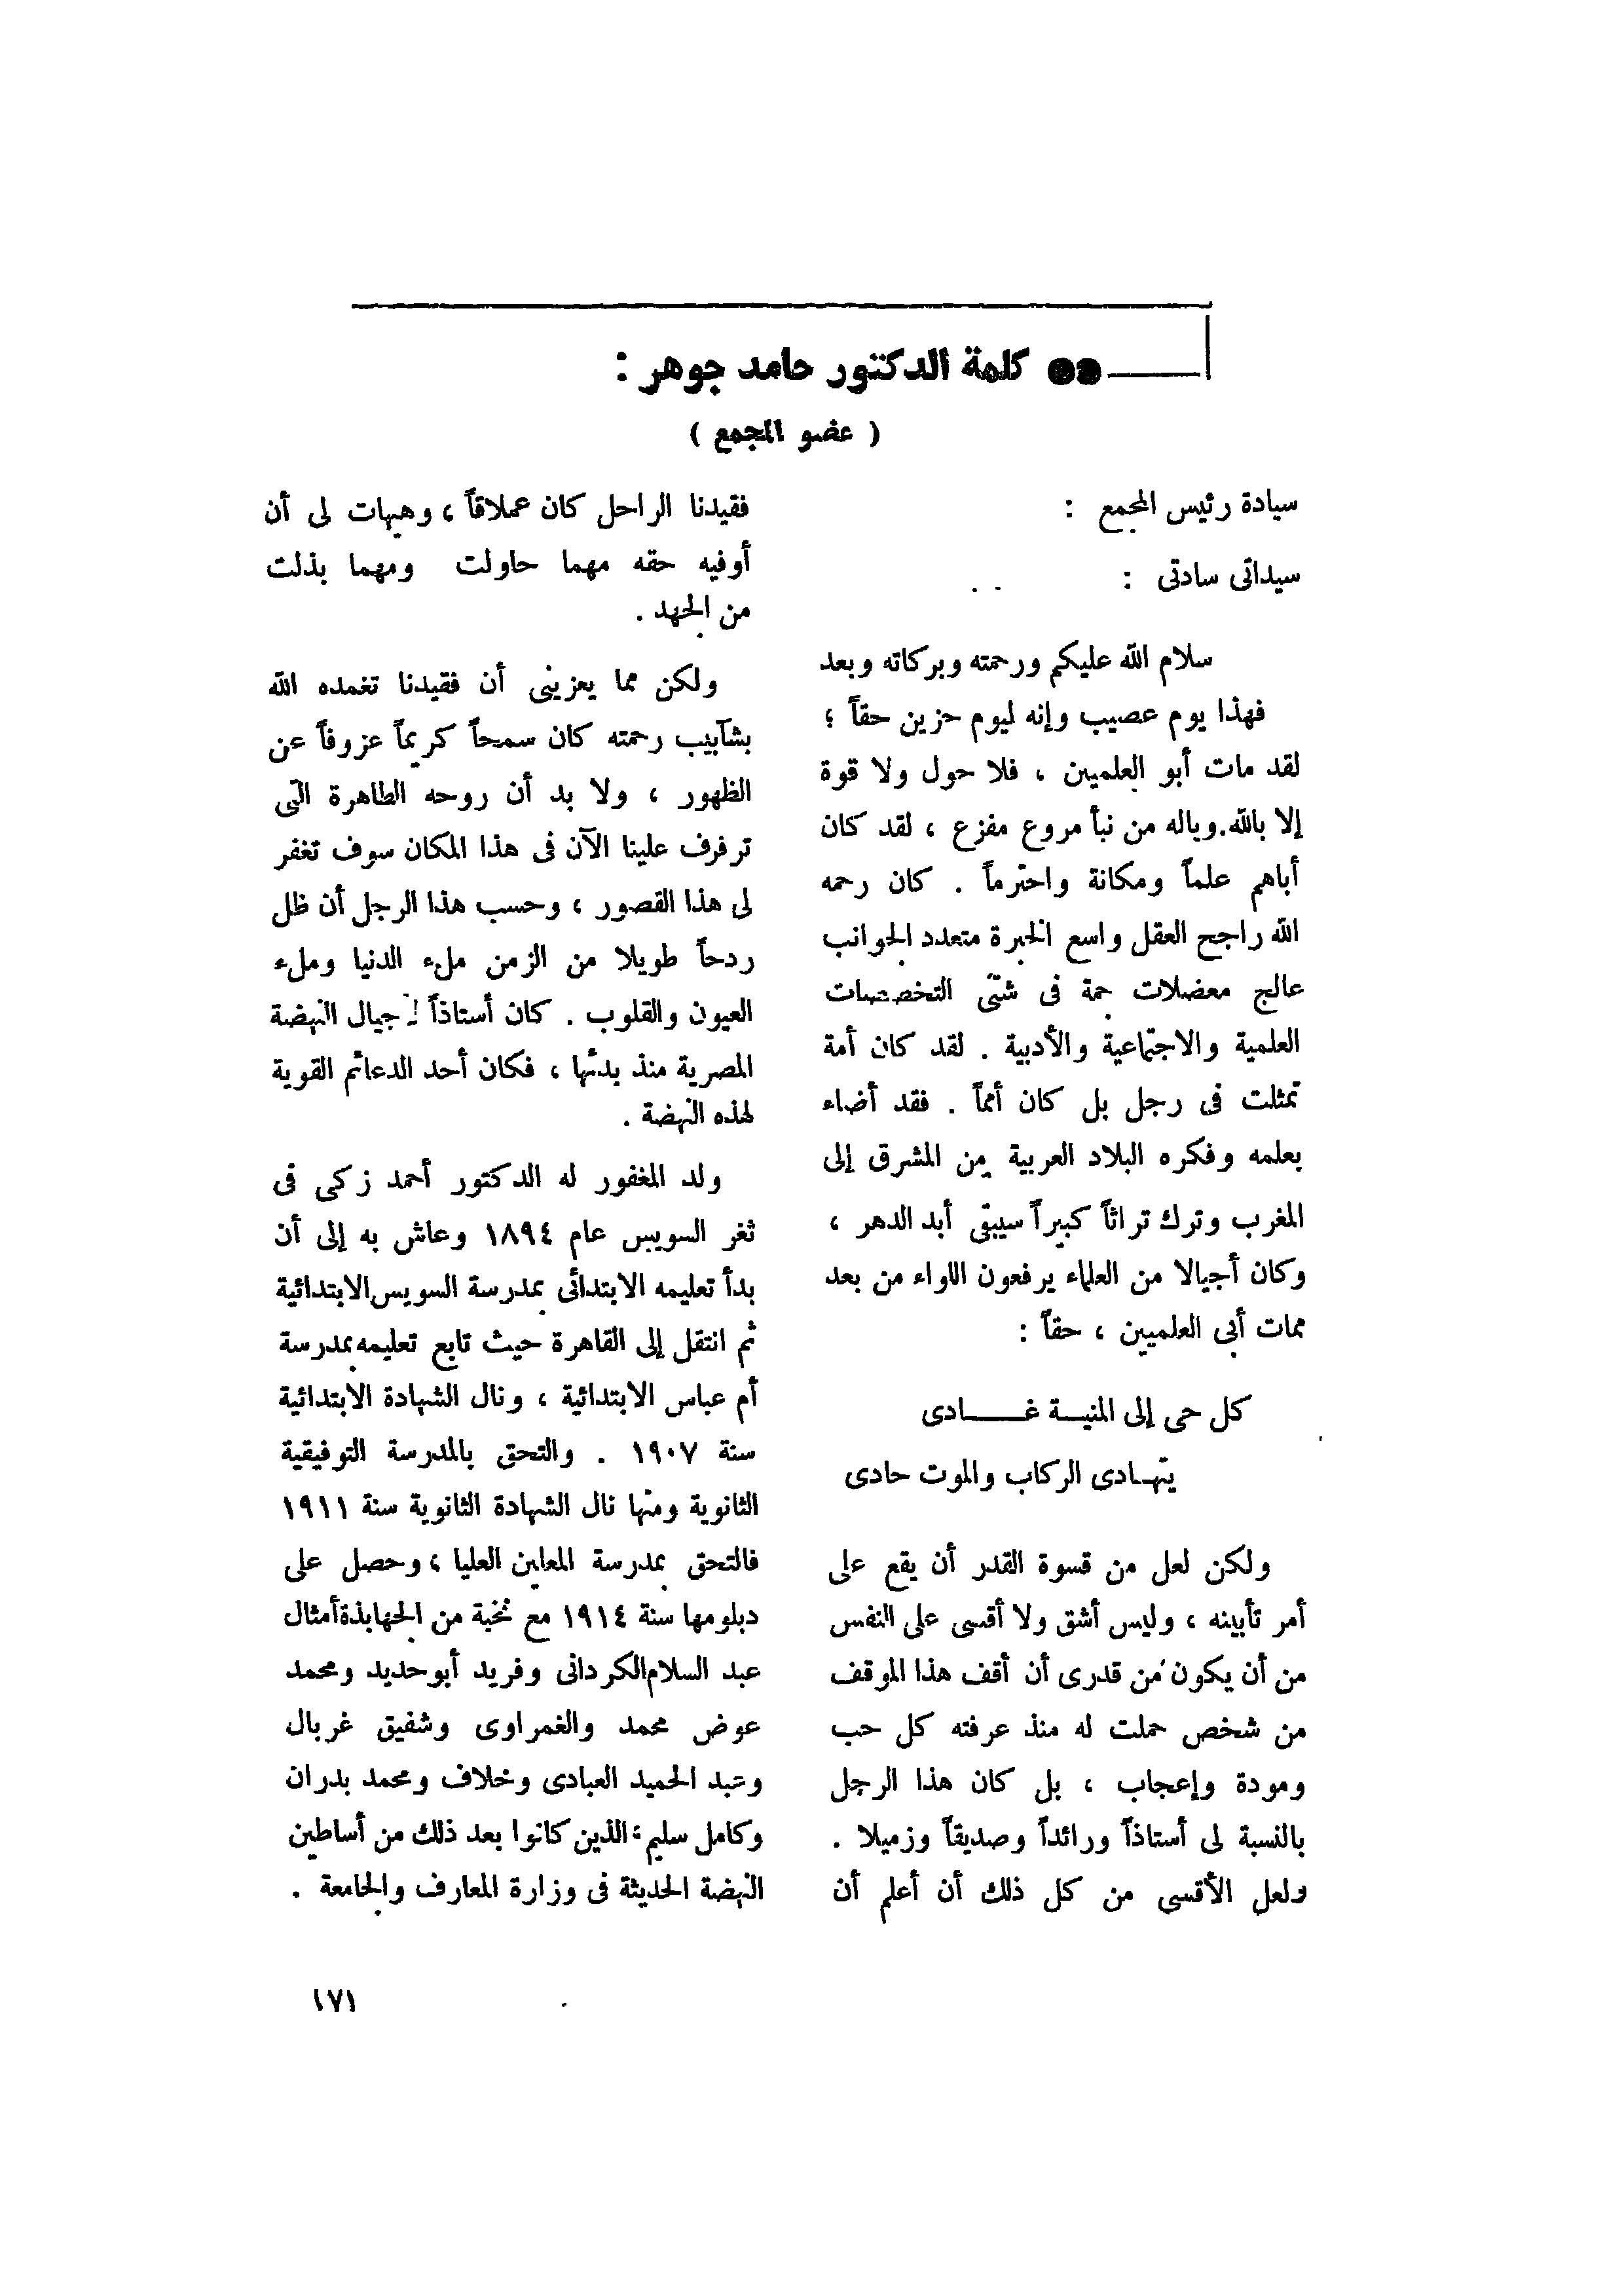 كلمة الدكتور حامد جوهر :
( عضو المجمع )
سيادة رئيس المجمع :
سيداتى سادتى :
سلام الله عليكم ورحمته وبركاته وبعد
فهذا يوم عصيب وإنه ليوم حزين حقاً ؛
لقد مات أبو العلميين ، فلا حول ولا قوة
إلا بالله.وياله من نبأ مروع مفزع ، لقد كان
أباهم علماً ومكانة واحترماً . كان رحمه
الله راجح العقل واسع الخبرة متعدد الجوانب
عالج معضلات جمة فى شتى التخصصات
العلمية والاجتماعية والأدبية . لقد كان أمة
تمثلت فى رجل بل كان أمماً . فقد أضاء
بعلمه وفكره البلاد العربية من المشرق إلى
المغرب وترك تراثاً كبيراً سيبقى أبد الدهر ،
وكان أجيالا من العلماء يرفعون اللواء من بعد
ممات أبى العلميين ، حقاً :
كل حى إلى المنيـة غــــادى
يتهـادى الركاب والموت حادى
ولكن لعل من قسوة القدر أن يقع على
أمر تأبينه ، وليس أشق ولا أقسى على النفس
من أن يكون من قدرى أن أقف هذا الموقف
من شخص حملت له منذ عرفته كل حب
ومودة وإعجاب ، بل كان هذا الرجل
بالنسبة لى أستاذاً ورائداً وصديقاً وزميلا .
ولعل الأقسى من كل ذلك أن أعلم أن
فقيدنا الراحل كان عملاقاً ، وهيهات لى أن
أوفيه حقه مهما حاولت ومهما بذلت
من الجهد .
ولكن مما يعزينى أن فقيدنا تغمده الله
بشآبيب رحمته كان سمحاً كريماً عزوفاً عن
الظهور ، ولا بد أن روحه الطاهرة التى
ترفرف علينا الآن فى هذا المكان سوف تغفر
لى هذا القصور ، وحسب هذا الرجل أن ظل
ردحاً طويلا من الزمن ملء الدنيا وملء
العيون والقلوب . كان أستاذاً لأجيال النهضة
المصرية منذ بدئها ، فكان أحد الدعائم القوية
لهذه النهضة .
ولد المغفور له الدكتور أحمد زكى فى
ثغر السويس عام ١٨٩٤ وعاش به إلى أن
بدأ تعليمه الابتدائى بمدرسة السويس الابتدائية
ثم انتقل إلى القاهرة حيث تابع تعليمه بمدرسة
أم عباس الابتدائية ، ونال الشهادة الابتدائية
سنة ١٩٠٧ . والتحق بالمدرسة التوفيقية
الثانوية ومنها نال الشهادة الثانوية سنة ١٩١١
فالتحق بمدرسة المعلمين العليا ، وحصل على
دبلومها سنة ١٩١٤ مع نخبة من الجهابذة أمثال
عبد السلام الكردانى وفريد أبو حديد ومحمد
عوض محمد والغمراوى وشفيق غربال
وعبد الحميد العبادى وخلاف ومحمد بدران
وكامل سليم ، الذين كانوا بعد ذلك من أساطين
النهضة الحديثة فى وزارة المعارف والجامعة .
١٧١